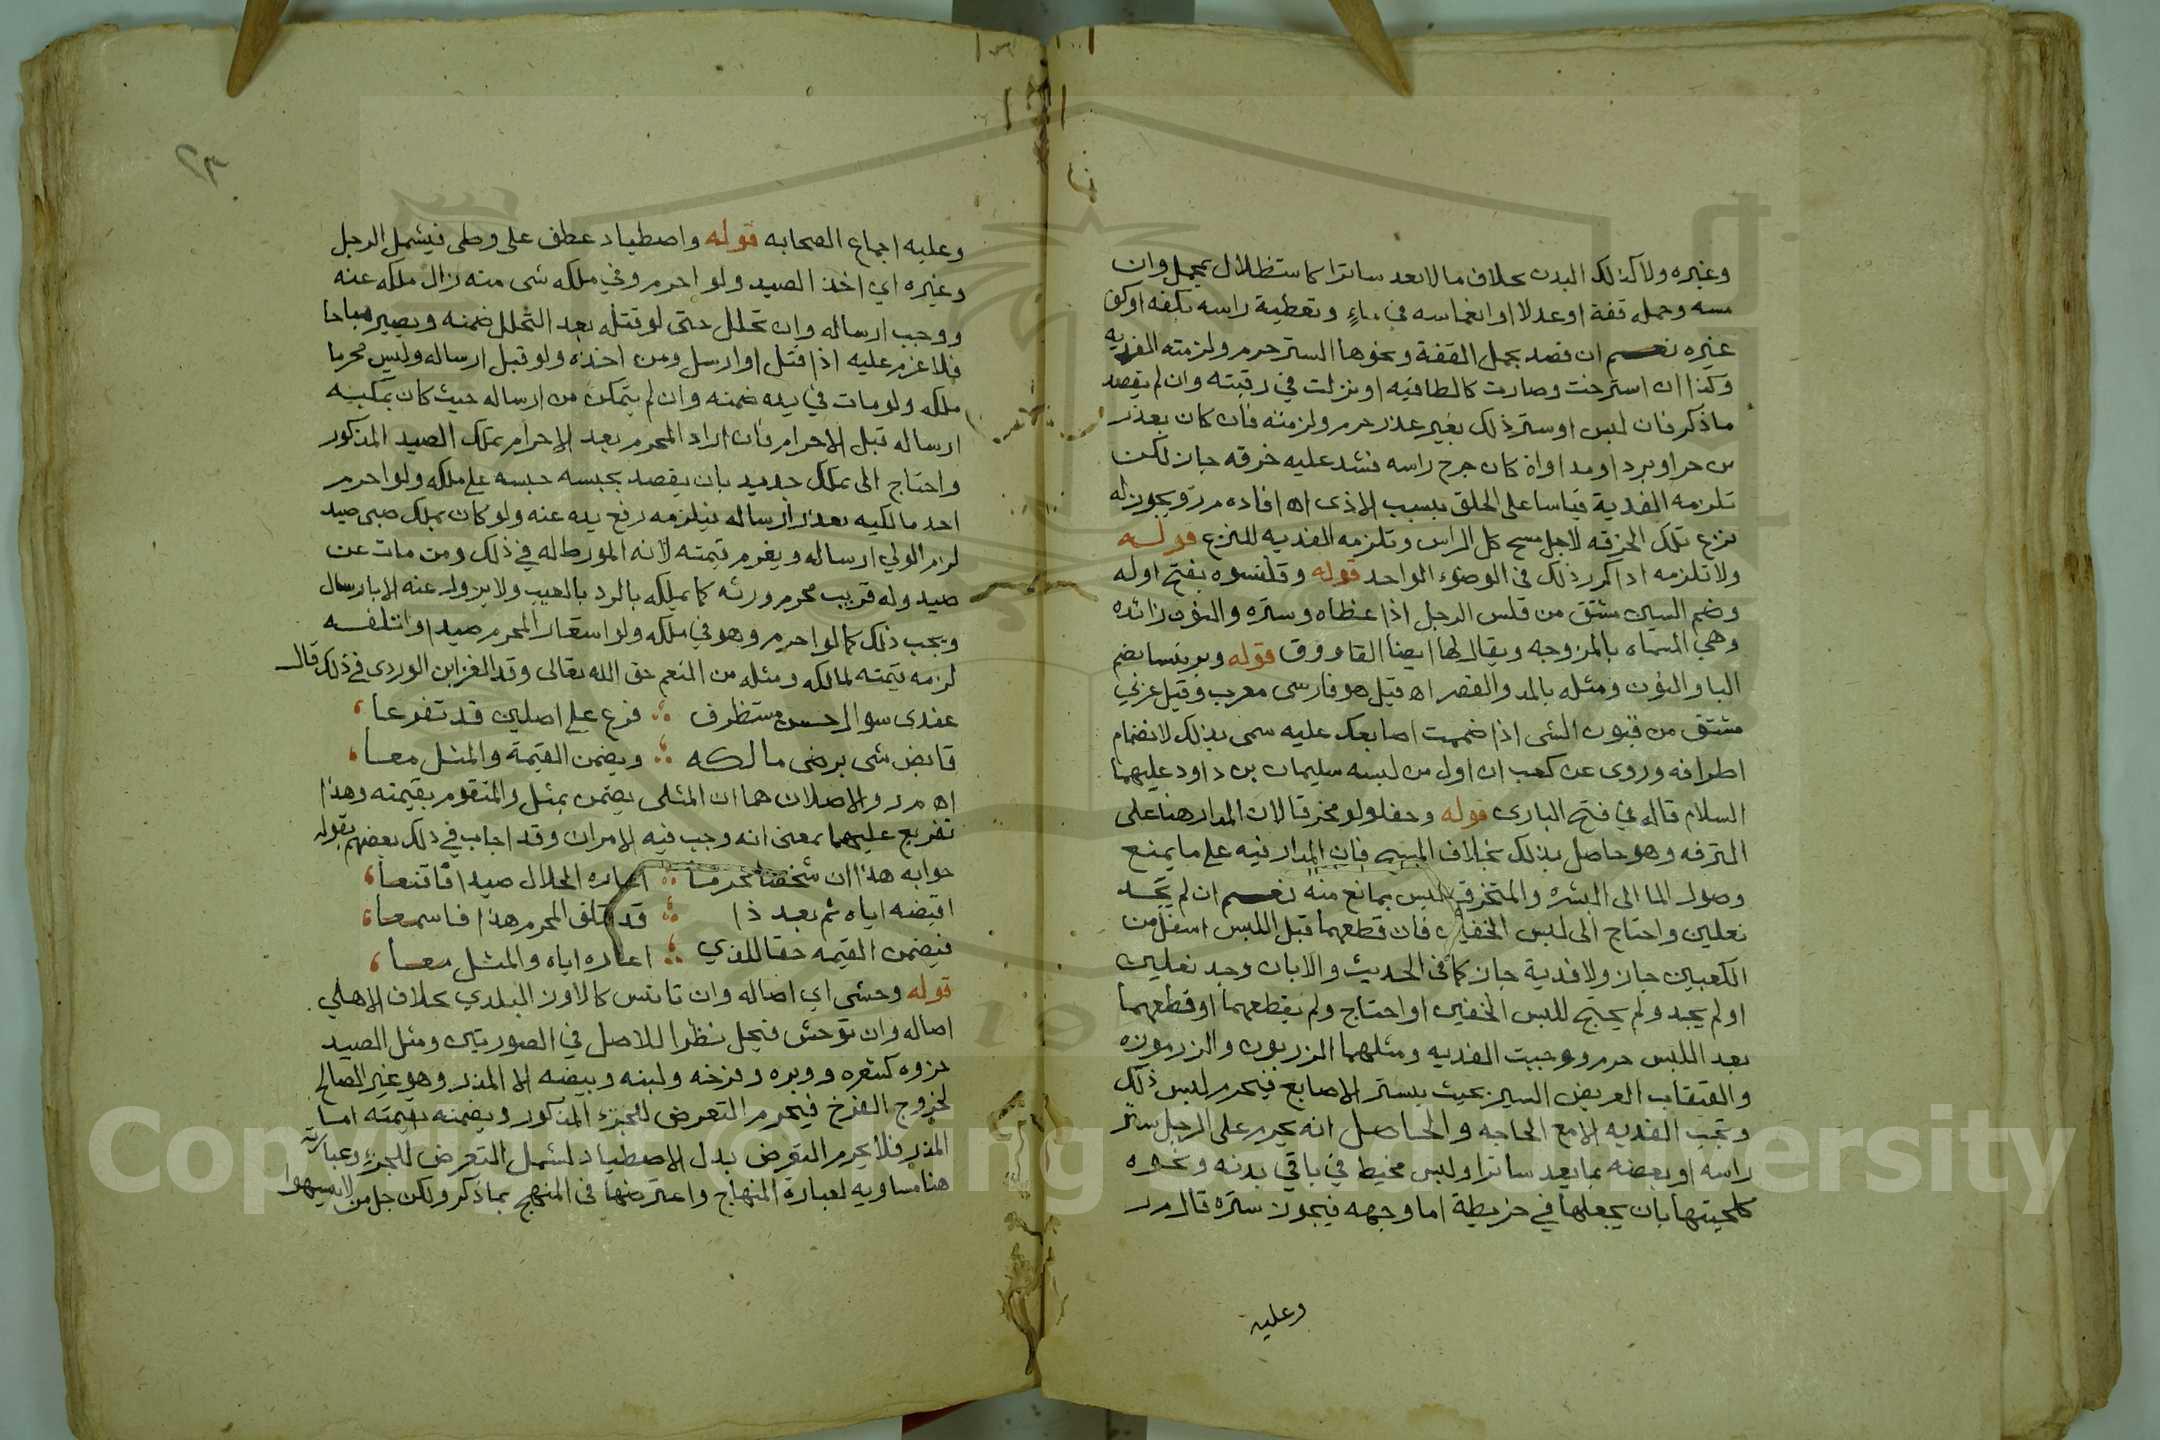 وغيره ولا كذلك البدن بخلاف ما لا يعد ساترا كاستظلال بمحمل وان
مسه وحمل قفة او عدلا او انغماسه في ماء وتغطية راسه بكفه اوكف
غيره نعم ان قصد بحمل القفة ونحوها الستر حرم ولزمته الفديه
وكذا ان استرخت وصارت كالطاقيه او نزلت في رقبته وان لم يقصد
ما ذكر فان لبس او ستر ذلك بغير عذر حرم ولزمته فان كان بعذر
من حر او برد او مداواة كان جرح راسه فشد عليه خرقه جاز لكن
تلزمه الفدية قياسا على الحلق بسبب الاذى اه افاده م ر ويجوز له
نزع تلك الخرقه لاجل مسح كل الراس وتلزمه الفديه للنزع قوله
ولا تلزمه اذا كرر ذلك في الوضوء الواحد قوله وقلنسوه بفتح اوله
وضم السين مشتق من قلس الرجل اذا غطاه وستره والنون زائده
وهي المسماه بالمزوجه ويقال لها ايضا القاووق قوله وبرنسا بضم
البا والنون ومثله بالمد والقصر اه قيل هو فارسى معرب وقيل عربي
مشتق من قبون الشى اذا ضممت اصابعك عليه سمى بذلك لانضمام
اطرافه وروى عن كعب ان اول من لبسه سليمان بن داود عليهما
السلام قاله في فتح البارى قوله وخفا ولو مخرقا لان المدار هنا على
الترفه وهو حاصل بذلك بخلاف المسح فان المدار فيه على ما يمنع
وصول الما الى البشره والمتخرق ليس بمانع منه نعم ان لم يجد
نعلين واحتاج الى لبس الخفين فان قطعهما قبل اللبس اسفل من
الكعبين جاز ولا فدية جاز كما في الحديث والا بان وجد نعلين
او لم يجد ولم يحتج للبس الخفين او احتاج ولم يقطعهما او قطعهما
بعد اللبس حرم ووجبت الفديه ومثلهما الزربون والزرموزه
والقبقاب العريض السير بحيث يستر الاصابع فيحرم لبس ذلك
وتجب الفديه الا مع الحاجه والحاصل انه يحرم على الرجل ستر
راسه او بعضه بما يعد ساترا ولبس مخيط في باقي بدنه ونحوه
كلحيتها بان يجعلها في خريطة اما وجهه فيجوز ستره قال م ر
وعليه
وعليه اجماع الصحابه قوله واصطياد عطف على وطى فيشمل الرجل
وغيره اي اخذ الصيد ولو احرم وفي ملكه شى منه زال ملكه عنه
ووجب ارساله وان تحلل حتى لو قتله بعد التحلل ضمنه ويصير مباحا
فلا غرم عليه اذا قتل او ارسل ومن اخذه ولو قبل ارساله وليس محرما
ملكه ولو مات في يده ضمنه وان لم يتمكن من ارساله حيث كان يمكنه
ارساله قبل الاحرام فان اراد المحرم بعد الاحرام تملك الصيد المذكور
واحتاج الى تملك جديد بان يقصد بحبسه حبسه على ملكه ولو احرم
احد مالكيه تعذر ارساله فيلزمه رفع يده عنه ولو كان بملك صبى صيد
لزم الولي ارساله ويغرم قيمته لانه المورط له في ذلك ومن مات عن
صيد وله قريب محرم ورثه كما يملكه بالرد بالعيب ولا يزول عنه الا بارسال
ويجب ذلك كما لو احرم وهو في ملكه ولو استعار المحرم صيدا واتلفه
لزمه قيمته لمالكه ومثله من النعم حق الله تعالى وقد الغز ابن الوردى في ذلك قال
عندى سوال حسن مستظرف فرع على اصلين قد تفرعا
قابض شى برضى مالكه ويضمن القيمة والمثل معا
اه م ر والاصلان هما ان المثلى يضمن بمثل والمتقوم بقيمته وهذا
تفريع عليهما بمعنى انه وجب فيه الامران وقد اجاب في ذلك بعضهم بقوله
جوابه هذا ان شخصا محرما اعاره الحلال صيدا فاقتنعا
اقبضه اياه ثم بعد ذا قد تلف المحرم هذا فاسمعا
فيضمن القيمه حقا للذي اعاره اياه والمثل معا
قوله وحشى اي اصاله وان تانس كالاوز البلدي بخلاف الاهلي
اصاله وان توحش فيحل نظرا للاصل في الصورتين ومثل الصيد
جزوه كشعره ووبره وفرخه ولبنه وبيضه الا المذر وهو غير الصالح
لخروج الفرخ فيحرم التعرض للجزء المذكور ويضمنه بقيمته اما
المذر فلا يحرم التعرض بدل الاصطياد لشمل التعرض للجزء وعبارته
هنا مساويه لعبارة المنهاج واعترضها في المنهج بما ذكر ولكن جل من لا يسهوا
Copyright © King Saud University